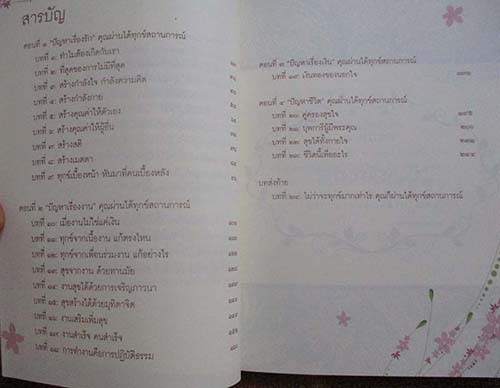 สารบัญ
ตอนที่ ๑ "ปัญหาเรื่องรัก" คุณผ่านได้ทุกข์สถานการณ์
บทที่ ๑: ทำไมต้องเกิดกับเรา
บทที่ ๒: ที่สุดของการไม่มีที่สุด
บทที่ ๓: สร้างกำลังใจ กำลังความคิด
บทที่ ๔: สร้างกำลังกาย
บทที่ ๕: สร้างคุณค่าให้ตัวเอง
บทที่ ๖: สร้างคุณค่าให้ผู้อื่น
บทที่ ๗: สร้างสติ
บทที่ ๘: สร้างเมตตา
บทที่ ๙: ทุกข์เบื้องหน้า หันมาที่คนเบื้องหลัง
ตอนที่ ๒ "ปัญหาเรื่องงาน" คุณผ่านได้ทุกข์สถานการณ์
บทที่ ๑๐: เมื่องานไม่ใช่แค่เงิน
บทที่ ๑๑: ทุกข์จากเนื้องาน แก้ตรงไหน
บทที่ ๑๒: ทุกข์จากเพื่อนร่วมงาน แก้อย่างไร
บทที่ ๑๓: สุขจากงาน ด้วยทานมัย
บทที่ ๑๔: งานสุขได้ด้วยการเจริญภาวนา
บทที่ ๑๕: สุขสร้างได้ด้วยมุทิตาจิต
บทที่ ๑๖: งานเสริมเพิ่มสุข
บทที่ ๑๗: งานสำเร็จ คนสำเร็จ
บทที่ ๑๘: การทำงานคือการปฏิบัติธรรม
ตอนที่ ๓ "ปัญหาเรื่องเงิน" คุณผ่านได้ทุกข์สถานการณ์
บทที่ ๑๙: เงินทองของนอกใจ
ตอนที่ ๔ "ปัญหาชีวิต" คุณผ่านได้ทุกข์สถานการณ์
บทที่ ๒๐: คู่ครองสุขใจ
บทที่ ๒๑: บุพการีผู้มีพระคุณ
บทที่ ๒๒: สุขได้ทั้งกายใจ
บทที่ ๒๓: ชีวิตนี้เพื่ออะไร
บทส่งท้าย
บทที่ ๒๔: ไม่ว่าจะทุกข์มากเท่าไร คุณก็ผ่านได้ทุกข์สถานการณ์